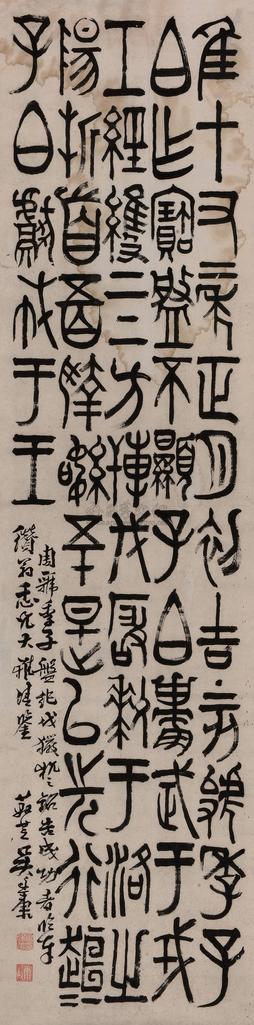 隹十又二年正月初吉丁亥虢季子
白乍寶盤不顯子白壯武于戎
工經維四方搏伐玁狁于洛之
陽折首五百執訊五十是以先行桓〻
子白獻馘于王
周虢季子盤紀伐玁狁銘告成功者臨奉
纘翁志兄大雅清鑒